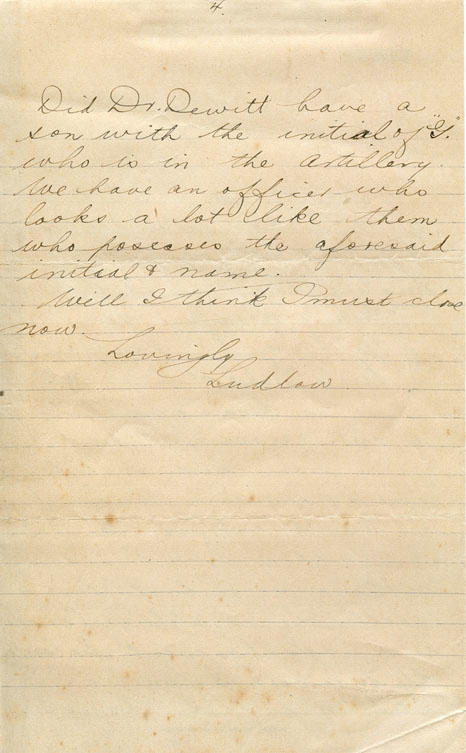 4.
Did Dr. Dewitt have a
son with the initial of "G."
who is in the artillery.
We have an officer who
looks a lot like them
who posesses the aforesaid
initial & name.
Well I think I must close
now.
Lovingly
Ludlow